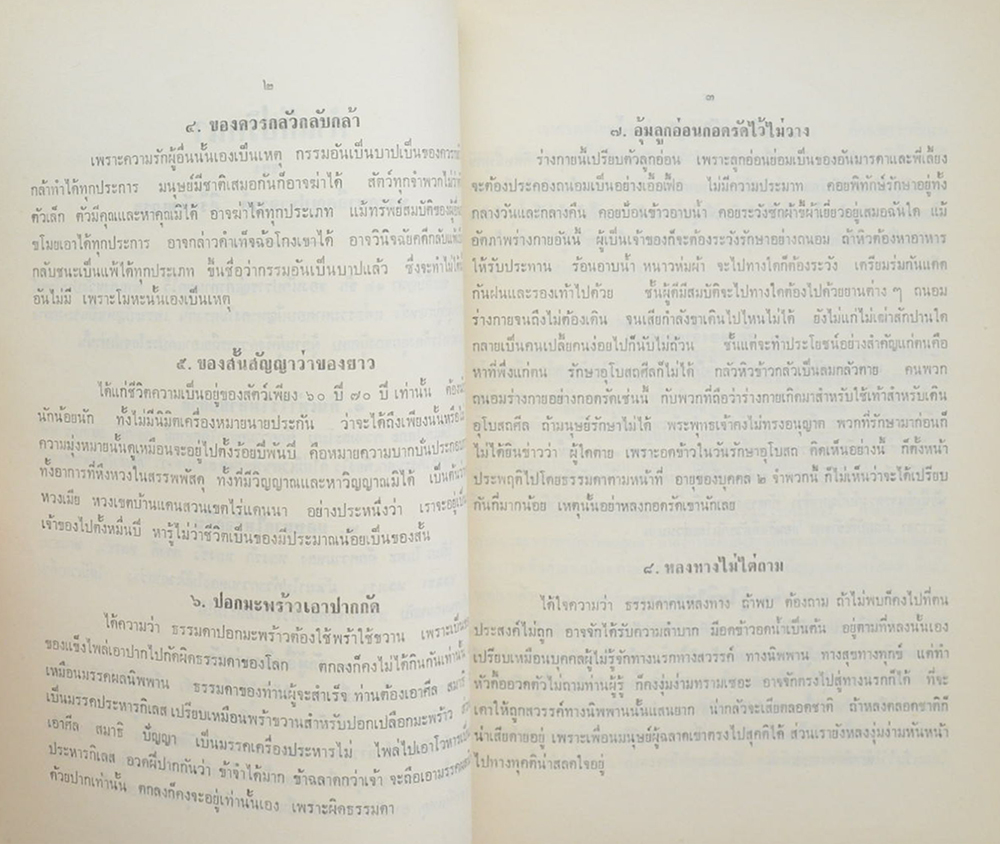 ๒
๔. ของควรกลัวกลับกล้า
เพราะความรักผู้อื่นนั้นเองเป็นเหตุ กรรมอันเป็นบาปเป็นของควร
กล้าทำได้ทุกประการ มนุษย์มีชาติเสมอกันก็อาจฆ่าได้ สัตว์ทุกจำพวกไม่ว่า
ตัวเล็ก ตัวมีคุณและหาคุณมิได้ อาจฆ่าได้ทุกประเภท แม้ทรัพย์สมบัติของผู้อื่น
ขโมยเอาได้ทุกประการ อาจกล่าวคำเท็จฉ้อโกงเขาได้ อาจวินิจฉัยคดีกลับแพ้
กลับชนะเป็นแพ้ได้ทุกประเภท ขึ้นชื่อว่ากรรมอันเป็นบาปแล้ว ซึ่งจะทำไม่ได้
อันไม่มี เพราะโมหะนั้นเองเป็นเหตุ
๕. ของสั้นสัญญาว่าของยาว
ได้แก่ชีวิตความเป็นอยู่ของสัตว์เพียง ๖๐ ปี ๗๐ ปี เท่านั้น
นักน้อยนัก ทั้งไม่มีนิมิตเครื่องหมายนายประกัน ว่าจะได้ถึงเพียงนั้นหรือ
ความมุ่งหมายนั้นดูเหมือนจะอยู่ไปตั้งร้อยปีพันปี คือหมายความบากบั่นประกอบ
ทั้งอาการที่หึงหวงในสรรพพัสดุ ทั้งที่มีวิญญาณและหาวิญญาณมิได้ เป็นต้นว่า
หวงเมีย หวงเขตบ้านแดนสวนเขตไร่แดนนา อย่างประหนึ่งว่า เราจะอยู่เป็น
เจ้าของไปตั้งหมื่นปี หารู้ไม่ว่าชีวิตเป็นของมีประมาณน้อยเป็นของสั้น
๖. ปอกมะพร้าวเอาปากกัด
ได้ความว่า ธรรมดาปอกมะพร้าวต้องใช้พร้าใช้ขวาน เพราะเป็น
ของแข็งไพล่เอาปากไปกัดผิดธรรมดาของโลก ตกลงก็คงไม่ได้กินกันเท่านั้น
เหมือนมรรคผลนิพพาน ธรรมดาของท่านผู้จะสำเร็จ ท่านต้องเอาศีล สมาธิ
เป็นมรรคประหารกิเลส เปรียบเหมือนพร้าขวานสำหรับปอกเปลือกมะพร้าว
เอาศีล สมาธิ ปัญญา เป็นมรรคเครื่องประหารไม่ ไพล่ไปเอาโวหาร
ประหารกิเลส อวดฝีปากกันว่า ข้าจำได้มาก ข้าฉลาดกว่าเจ้า จะถือเอามรรคผล
ด้วยปากเท่านั้น ตกลงก็คงจะอยู่เท่านั้นเอง เพราะผิดธรรมดา
๓
๗. อุ้มลูกอ่อนกอดรัดไว้ไม่วาง
ร่างกายนี้เปรียบตัวลูกอ่อน เพราะลูกอ่อนย่อมเป็นของอันมารดาและพี่เลี้ยง
จะต้องประคองถนอมเป็นอย่างเอื้อเฟื้อ ไม่มีความประมาท คอยพิทักษ์รักษาอยู่ทั้ง
กลางวันและกลางคืน คอยป้อนข้าวอาบน้ำ คอยระวังซักผ้าขี้ผ้าเยี่ยวอยู่เสมอฉันใด แม้
อัตภาพร่างกายอันนี้ ผู้เป็นเจ้าของก็จะต้องระวังรักษาอย่างถนอม ถ้าหิวต้องหาอาหาร
ให้รับประทาน ร้อนอาบน้ำ หนาวห่มผ้า จะไปทางใดก็ต้องระวัง เตรียมร่มกันแดด
กันฝนและรองเท้าไปด้วย ชั้นผู้ดีมีสมบัติจะไปทางใดต้องไปด้วยยานต่าง ๆ ถนอม
ร่างกายจนถึงไม่ต้องเดิน จนเสียกำลังขาเดินไปไหนไม่ได้ ยังไม่แก่ไม่เฒ่าสักปานใด
กลายเป็นคนเปลี้ยคนง่อยไปก็นับไม่ถ้วน ชั้นแต่จะทำประโยชน์อย่างสำคัญแก่ตนคือ
หาที่พึ่งแก่ตน รักษาอุโบสถศีลก็ไม่ได้ กลัวหิวข้าวกลัวเป็นลมกลัวตาย คนพวก
ถนอมร่างกายอย่างกอดรัดเช่นนี้ กับพวกที่ถือว่าร่างกายเกิดมาสำหรับใช้เท้าสำหรับเดิน
อุโบสถศีล ถ้ามนุษย์รักษาไม่ได้ พระพุทธเจ้าคงไม่ทรงอนุญาต พวกที่รักษามาก่อนก็
ไม่ได้ยินข่าวว่า ผู้ใดตาย เพราะอดข้าวในวันรักษาอุโบสถ คิดเห็นอย่างนี้ ก็ตั้งหน้า
ประพฤติไปโดยธรรมดาตามหน้าที่ อายุของบุคคล ๒ จำพวกนี้ ก็ไม่เห็นว่าจะได้เปรียบ
กันกี่มากน้อย เหตุนั้นอย่าหลงกอดรัดเขานักเลย
๘. หลงทางไม่ไต่ถาม
ได้ใจความว่า ธรรมดาคนหลงทาง ถ้าพบ ต้องถาม ถ้าไม่พบก็คงไปที่ตน
ประสงค์ไม่ถูก อาจจักได้รับความลำบาก มีอดข้าวอดน้ำเป็นต้น อยู่ตามที่หลงนั้นเอง
เปรียบเหมือนบุคคลผู้ไม่รู้จักทางนรกทางสวรรค์ ทางนิพพาน ทางสุขทางทุกข์ แต่ทำ
หัวดื้ออวดตัวไม่ถามท่านผู้รู้ ก็คงงุ่มง่ามทรามเซอะ อาจจักตรงไปสู่ทางนรกก็ได้ ที่จะ
เดาให้ถูกสวรรค์ทางนิพพานนั้นแสนยาก น่ากลัวจะเสียตลอดชาติ ถ้าหลงตลอดชาติก็
น่าเสียดายอยู่ เพราะเพื่อนมนุษย์ผู้ฉลาดเขาตรงไปสุคติได้ ส่วนเรายังหลงงุ่มง่ามหันหน้า
ไปทางทุคติน่าสลดใจอยู่